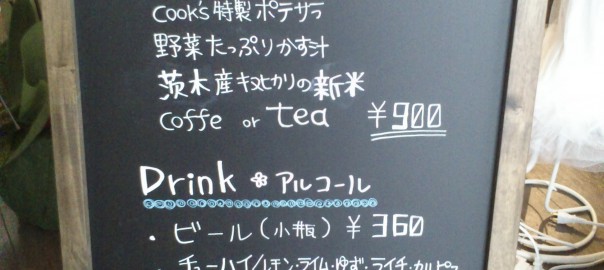 Cook's 特製ポテサラ
野菜たっぷりかす汁
茨木産キヌヒカリの新米
coffe or tea ¥900
Drink アルコール
・ビール(小瓶) ¥360
・チューハイ/レモン・ライム・ゆず・ライチ・カルピス